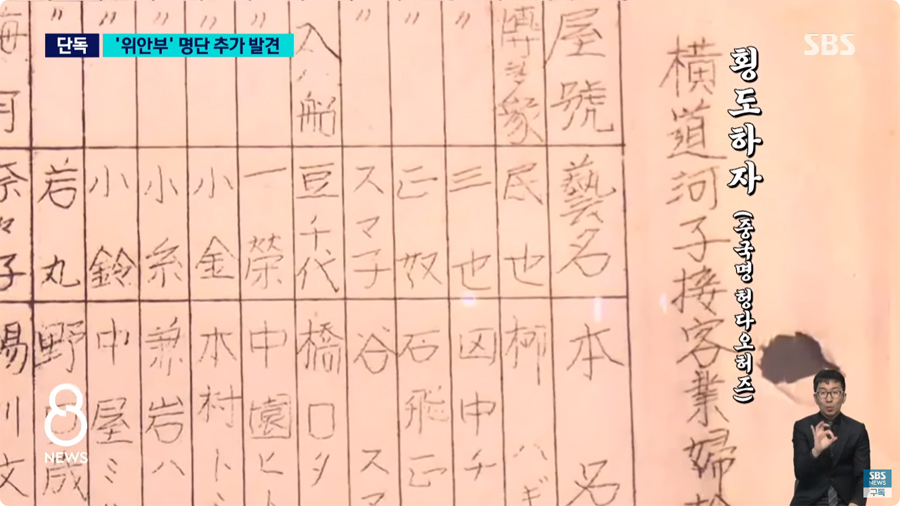 단독 '위안부' 명단 추가 발견
SBS
횡도하자
(중국명 헝다오허즈)
横道河子接客業婦
屋號 藝名 本名
民也 柳 ハギ
〃 三也 中チ
〃 正奴 石飛正
〃 スマ子 谷 スマ
入船 豆千代 橋口タ
〃 一榮 中園ヒト
〃 小金 本村トミ
〃 小糸 兼岩ハ
〃 小鈴 中屋ミ
〃 若丸 野口成
月 奈々子 湯川文
8
NEWS
SBS
NEWS
구독